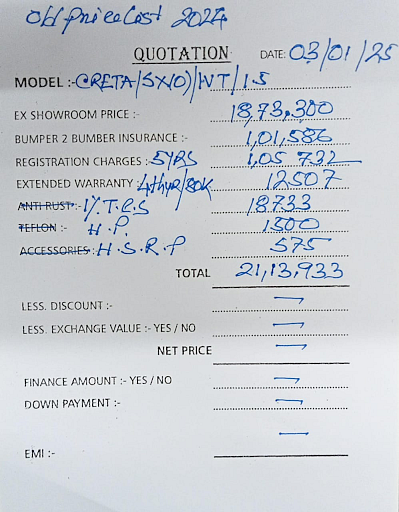 old price list 2024
QUOTATION DATE: 03/01/25
MODEL :- CRETA/SX(O)/IVT/1.5
EX SHOWROOM PRICE :- 18,73,300
BUMPER 2 BUMBER INSURANCE :- 1,01,586
REGISTRATION CHARGES :- 5YRS 1,05 732
EXTENDED WARRANTY :- 4thyr/80K 12507
ANTI RUST :- 1% T.C.S 18733
TEFLON :- H.P. 1500
ACCESSORIES :- H.S.R.P 575
TOTAL 21,13,933
LESS. DISCOUNT :- —
LESS. EXCHANGE VALUE :- YES / NO —
NET PRICE —
FINANCE AMOUNT :- YES / NO —
DOWN PAYMENT :- —
—
EMI :-